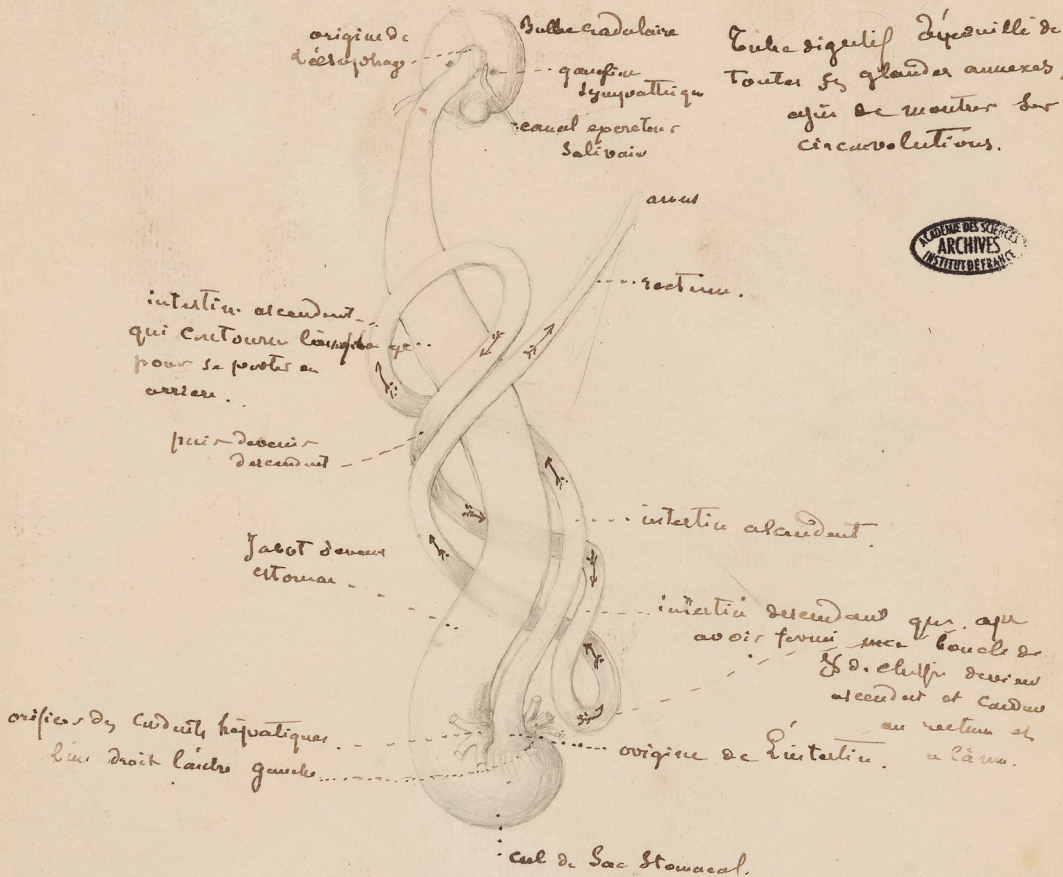 origine de
l'œsophage
Bulbe radulaire
ganglion
sympathique
canal excreteur
Salivair
Tube digestif dépouillé de
toutes ses glandes annexes,
afin de montrer ses
circonvolutions.
anus
ACADEMIE DES SCIENCES
ARCHIVES
INSTITUT DE FRANCE
rectum.
intestin ascendant
qui contourne
pour se porter en
arriere.
puis devenir
descendant
intestin ascendant.
Jabot devenu
estomac
intestin descendant qui
avoir formé une boucle de
8 de chiffre devient
ascendant et
au rectum et
a l'anus.
orifices des conduits hépatiques
l'un droit l'autre gauche
origine de l'intestin.
cul de Sac Stomacal.